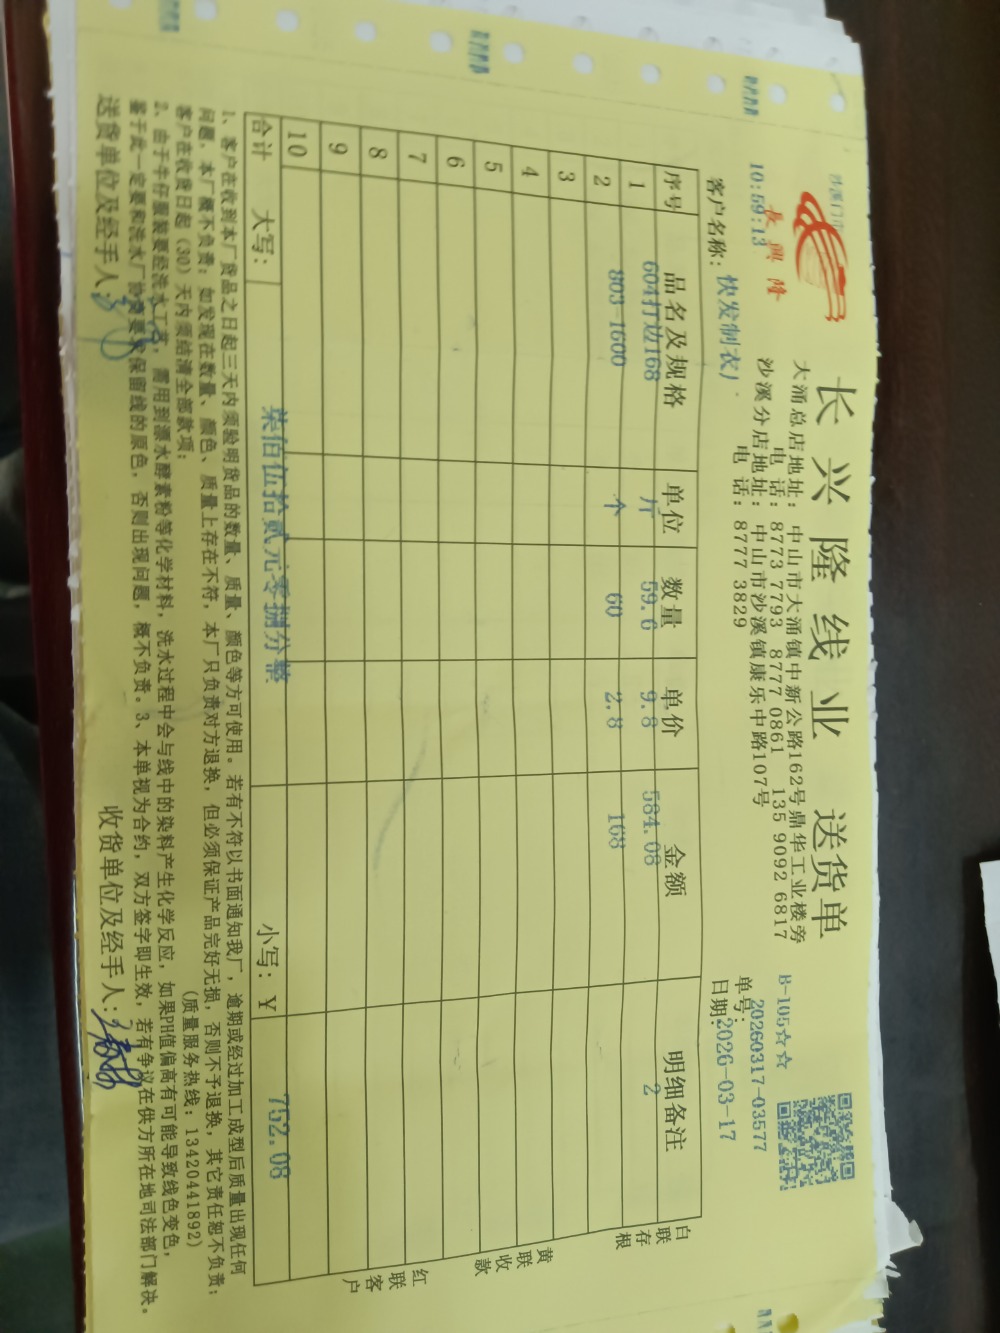 长兴隆线业 送货单
沙溪门市
長興隆
10:59:13
大涌总店地址：中山市大涌镇中新公路162号鼎华工业楼旁
电 话：8773 7793 8777 0861 135 9092 6817
沙溪分店地址：中山市沙溪镇康乐中路107号
电 话：8777 3829
B-105☆☆
单号：20260317-03577
客户名称：快发制衣厂
日期：2026-03-17
序号 品名及规格 单位 数量 单价 金额 明细备注
1 604打边168 斤 59.6 9.8 584.08 2
2 803-1600 个 60 2.8 168
3
4
5
6
7
8
9
10
合计 大写：柒佰伍拾贰元零捌分整 小写：￥ 752.08
白联存根
黄联收款
红联客户
1、客户在收到本厂货品之日起三天内须验明货品的数量、质量、颜色等方可使用。若有不符以书面通知我厂，逾期或经过加工成型后质量出现任何
问题，本厂概不负责；如发现在数量、颜色、质量上存在不符，本厂只负责对方退换，但必须保证产品完好无损，否则不予退换，其它责任恕不负责；
客户在收货日起（30）天内须结清全部款项； （质量服务热线：13420441892）
2、由于牛仔服装要经洗水工序，需用到漂水酵素粉等化学材料，洗水过程中会与线中的染料产生化学反应，如果PH值偏高有可能导致线色变色，
鉴于此一定要和洗水厂协商要求保留线的原色，否则出现问题，概不负责。3、本单视为合约，双方签字即生效，若有争议在供方所在地司法部门解决。
送货单位及经手人： 收货单位及经手人：